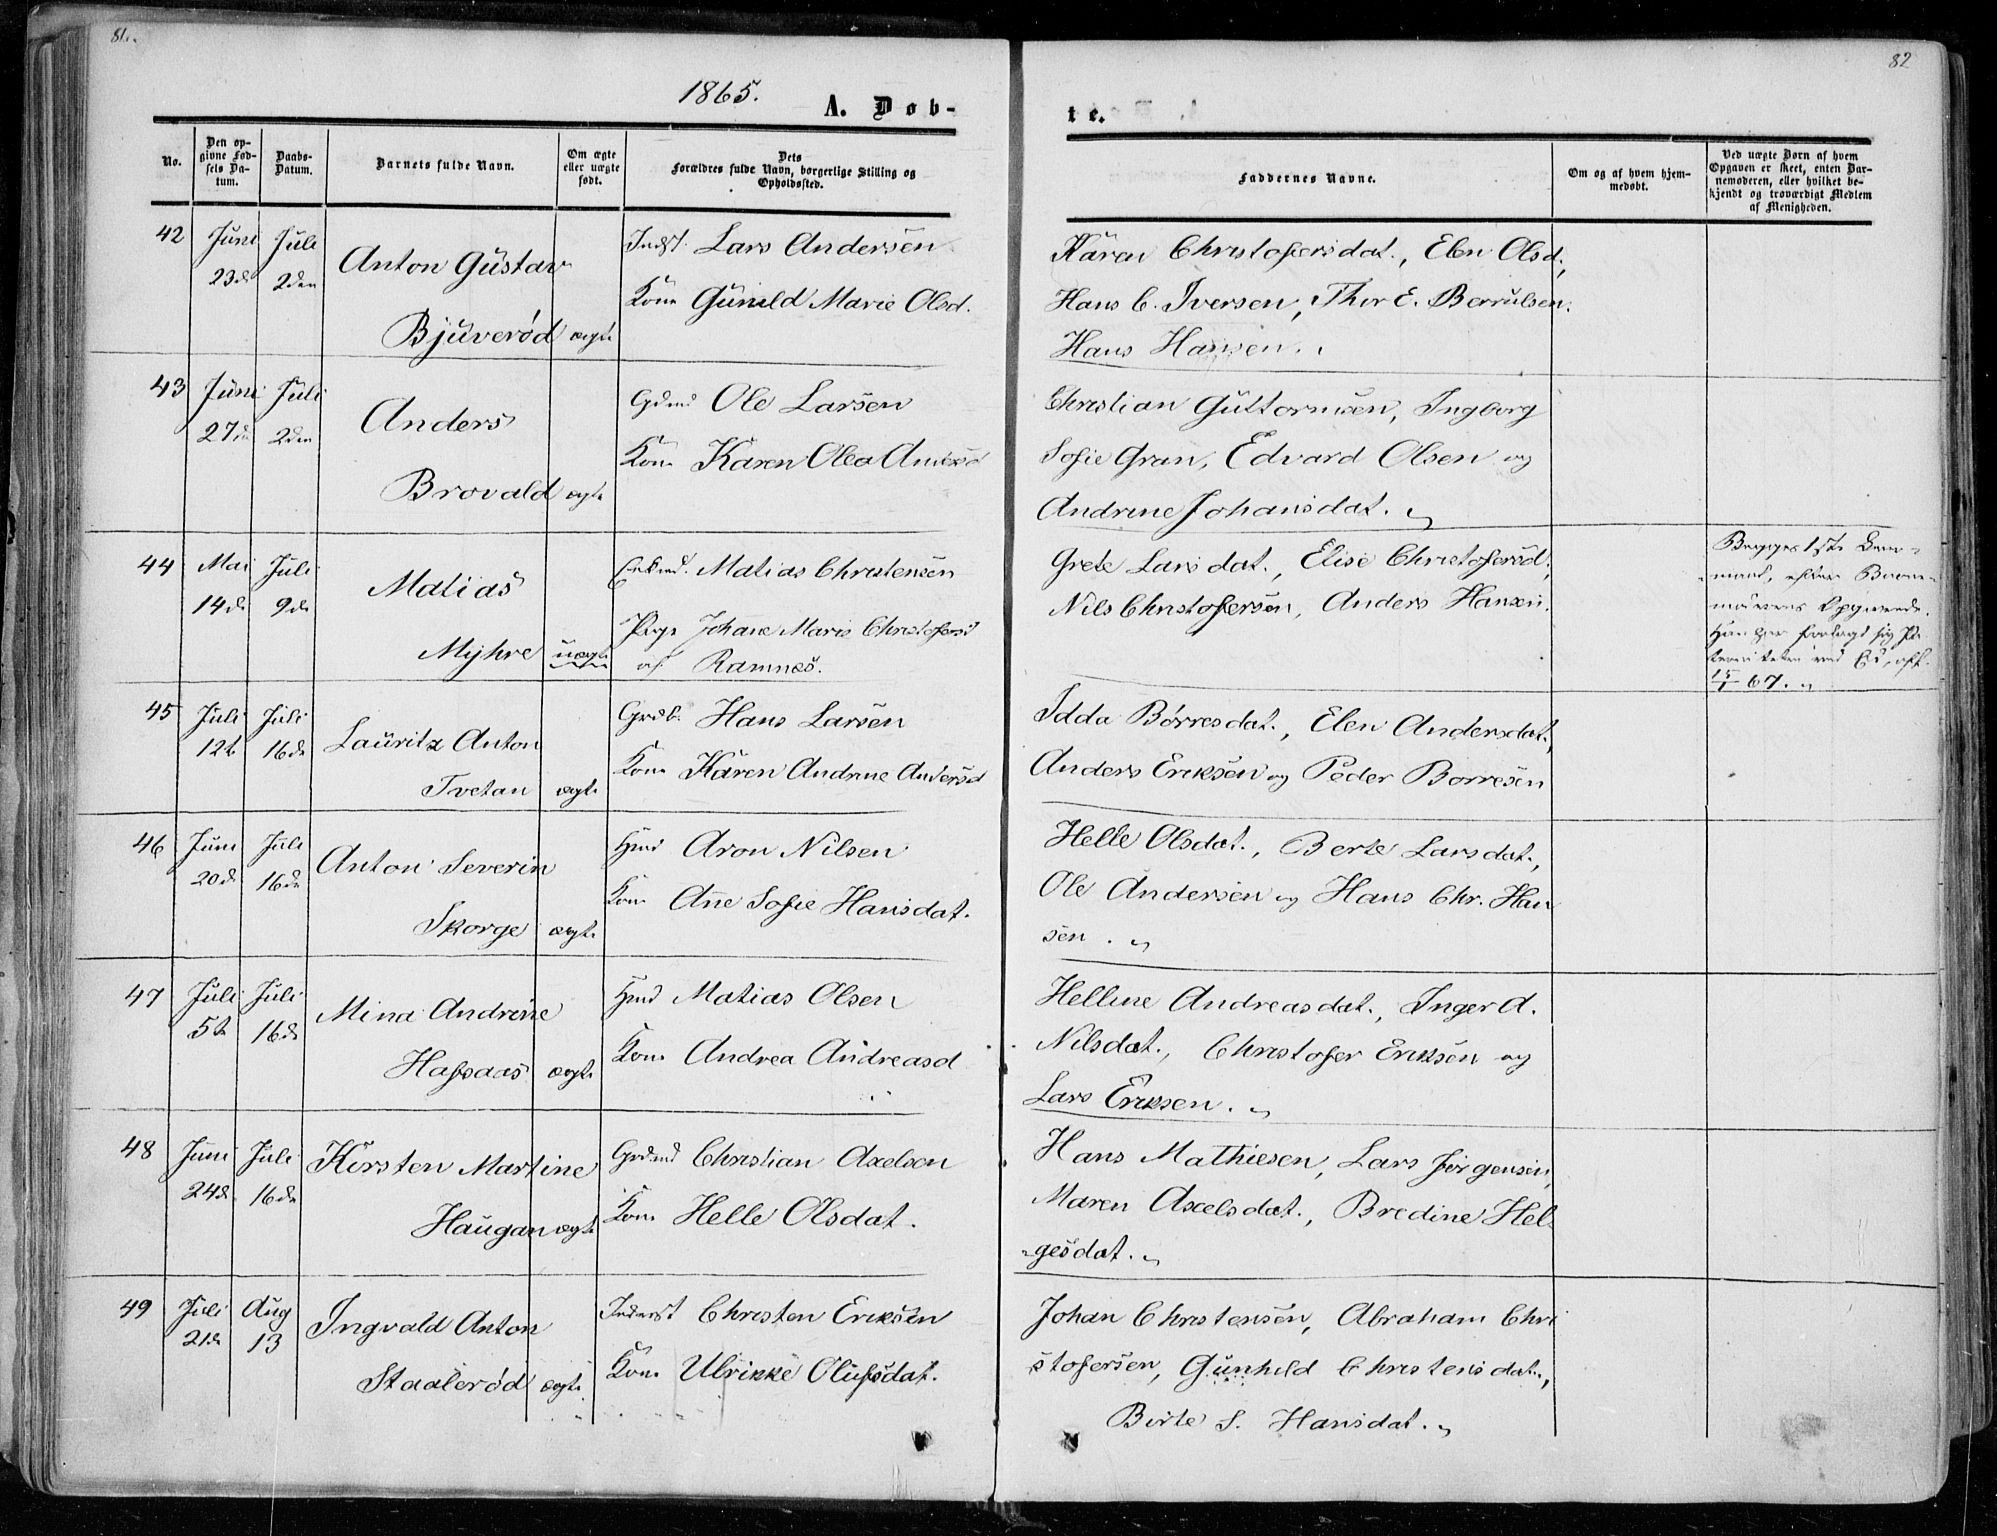 81.
82
1865.
A. Døb-
te.
No.
Den op-
givne Fød-
sels Da-
tum.
Daabs-
Datum.
Barnets fulde Navn.
Om ægte
eller uægte
født.
Dets
Forældres fulde Navn, borgerlige Stilling og
Opholdssted.
Faddernes Navne.
Om og af hvem hjem-
medøbt.
Ved uægte Børn af hvem
Opgaven er skeet, enten Bar-
nemoderen, eller hvilket be-
kjendt og troværdigt Medlem
af Menigheden.
42
Juni
23d
Juli
2den
Anton Gustav
Bjuverød
ægte
Indst. Lars Andersen
Kone Gunild Marie Olsd.
Karen Christofersdat., Elen Olsd.,
Hans C. Iversen, Thor E. Berrulsen,
Hans Hansen.
43
Juni
27de
Juli
2den
Anders
Brovald
ægte
Gdmd Ole Larsen
Kone Karen Olea Andersd
Christian Guttormsen, Ingborg
Sofie Gran, Edvard Olsen og
Andrine Johansdat.
44
Mai
14d
Juli
9d
Matias
Myhre
uægte
Matias Christensen
Pige Johane Marie Christofersd
af Ramnæs.
Grete Larsdat., Elise Christofersd.,
Nils Christofersen, Anders Hansen.
Begges 1ste
15/1 67.
45
Juli
12t
Juli
16d
Lauritz Anton
Tvetan
ægte
Grdb. Hans Larsen
Kone Karen Andrine Andersd
Idda Børresdat., Elen Andersdat.,
Anders Eriksen og Peder Borresen
46
Juni
20d
Juli
16de
Anton Severin
Skorge
ægte
Hmd Aron Nilsen
Kone Ane Sofie Hansdat.
Helle Olsdat., Berte Larsdat.,
Ole Andersen og Hans Chr. Han
sen.
47
Juli
5t
Juli
16d
Mina Andrine
Hassaas
ægte
Hmd Matias Olsen
Kone Andrea Andreasd
Helline Andreasdat., Inger A.
Nilsdat., Christofer Eriksen og
Lars Eriksen.
48
Juni
24d
Juli
16de
Kirsten Martine
Haugan
ægte
Grdmd Christian Axelsen
Kone Helle Olsdat.
Hans Mathiesen, Lars Jørgensen,
Maren Axelsdat., Bredine Hel-
-gesdat.
49
Juli
21d
Aug
13
Ingvald Anton
Staalerød
ægte
Inderst Christen Eriksen
Kone Ulrikke Olufsdat.
Johan Christensen, Abraham Chri
stofersen, Gunhild Christensdat.,
Birte S. Hansdat.